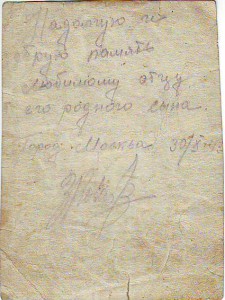 На долгую и
добрую память
Любимому отцу
его родного сына.
Город Москва